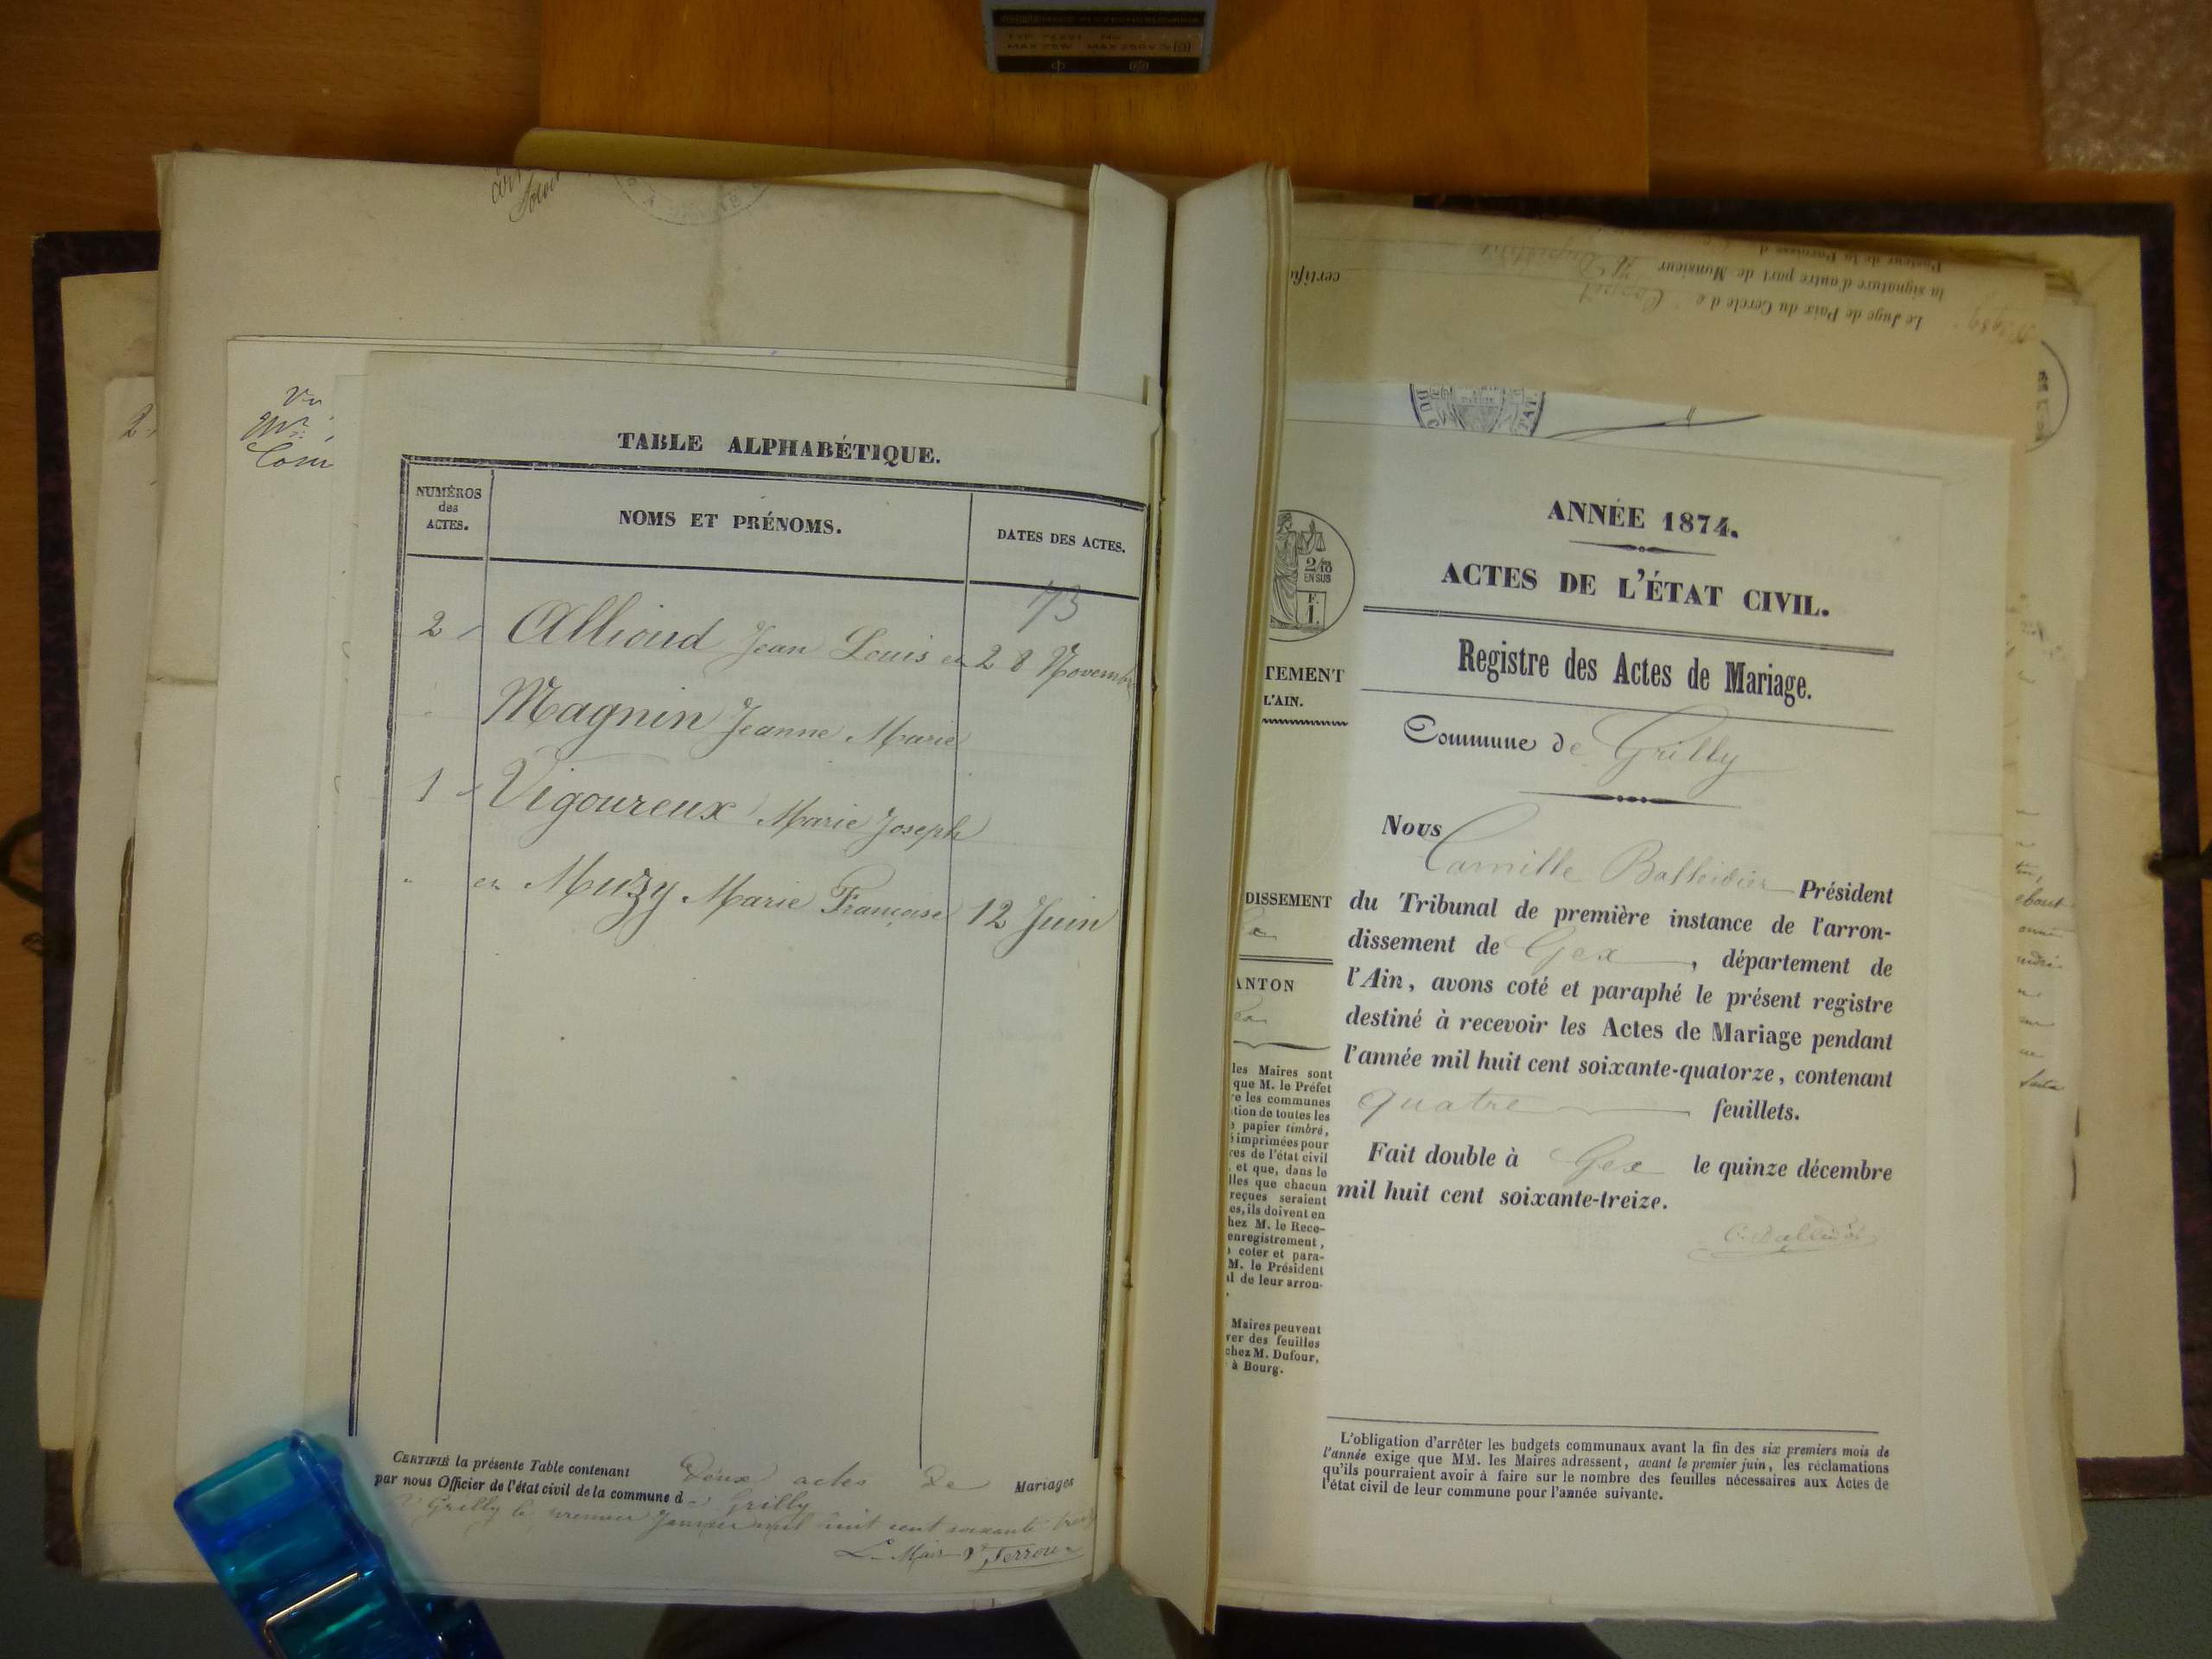 TABLE ALPHABÉTIQUE.
NUMÉROS
des
ACTES.
NOMS ET PRÉNOMS.
DATES DES ACTES.
73
2 Allioud Jean Louis et 28 Novembre
Magnin Jeanne Marie
1 Vigoureux Marie Joseph
" et Muzy Marie Françoise 12 Juin
CERTIFIÉ la présente Table contenant Deux actes de Mariages
par nous Officier de l'état civil de la commune de Grilly
Grilly le premier Janvier mil huit cent soixante
Le Maire
ANNÉE 1874.
ACTES DE L'ÉTAT CIVIL.
Registre des Actes de Mariage.
Commune de Grilly
Nous
Camille Balleidier Président
du Tribunal de première instance de l'arron-
dissement de Gex, département de
l'Ain, avons coté et paraphé le présent registre
destiné à recevoir les Actes de Mariage pendant
l'année mil huit cent soixante-quatorze, contenant
quatre feuillets.
Fait double à Gex le quinze décembre
mil huit cent soixante-treize.
L'obligation d'arrêter les budgets communaux avant la fin des six premiers mois de
l'année exige que MM. les Maires adressent, avant le premier juin, les réclamations
qu'ils pourraient avoir à faire sur le nombre des feuilles nécessaires aux Actes de
l'état civil de leur commune pour l'année suivante.
2/10
EN SUS
F.
1.
TEMENT
L'AIN.
DISSEMENT
ANTON
les Maires sont
que M. le Préfet
re les communes
tion de toutes les
papier timbré,
imprimées pour
res de l'état civil
et que, dans le
lles que chacun
reçues seraient
es, ils doivent en
hez M. le Rece-
enregistrement,
coter et para-
M. le Président
l de leur arron-
Maires peuvent
ver des feuilles
chez M. Dufour,
à Bourg.
certifi
Le Juge de Paix du Cercle de Coppet
la signature d'autre part de Monsieur
Pasteur de la Paroisse d